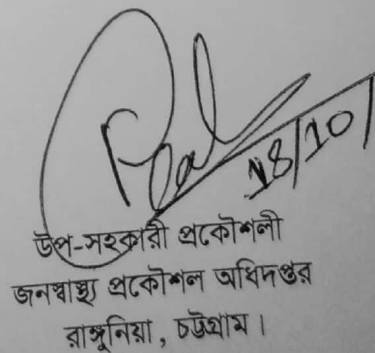 18/10/
উপ-সহকারী প্রকৌশলী
জনস্বাস্থ্য প্রকৌশল অধিদপ্তর
রাঙ্গুনিয়া, চট্টগ্রাম।